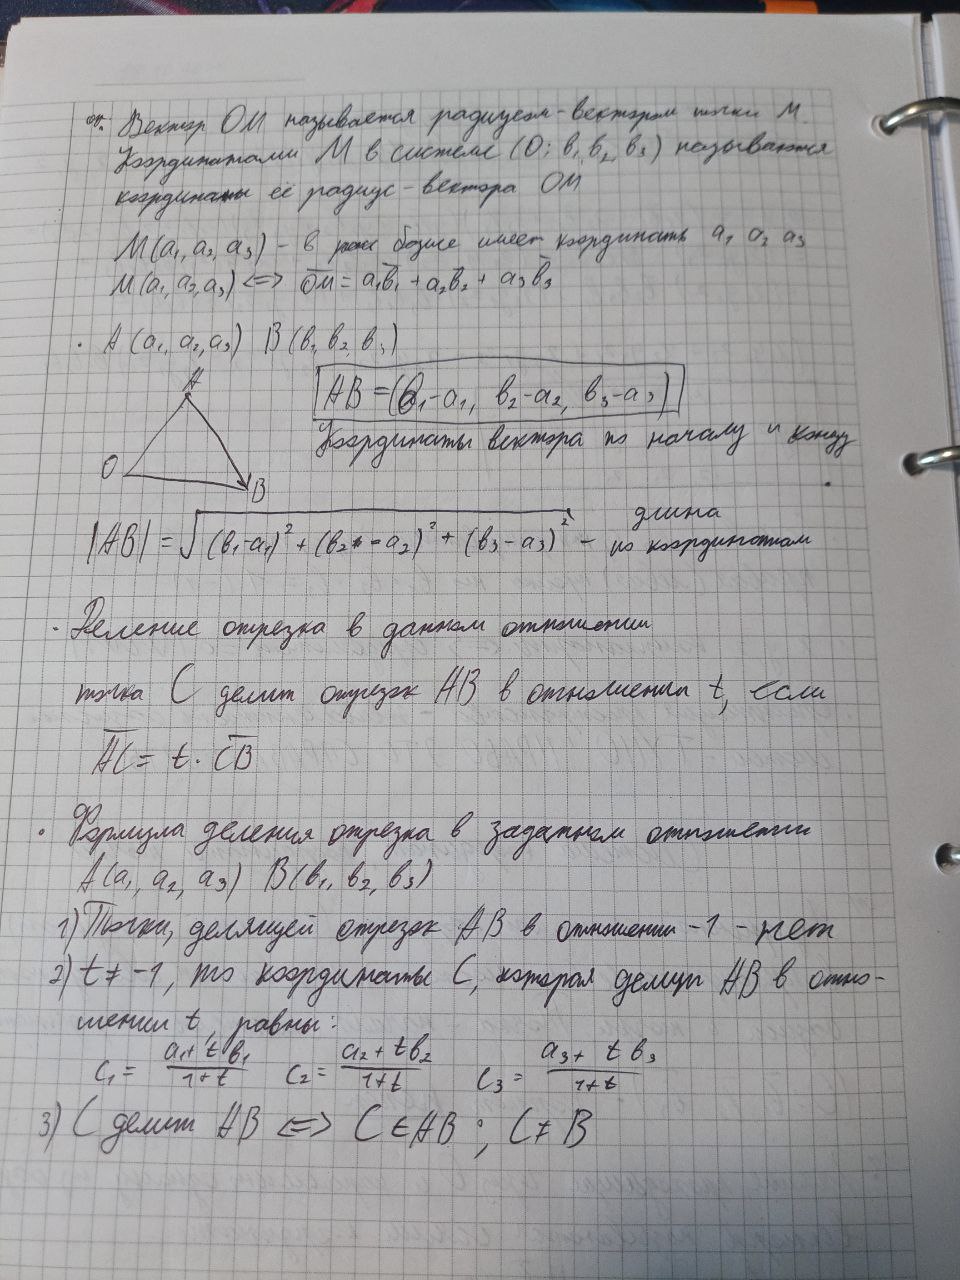 оп. Вектор OM называется радиусом-вектором точки M.
Координатами M в системе (O; b₁ b₂, b₃) называются
координаты её радиус-вектора OM
M(a₁, a₂, a₃) - в базисе имеет координаты a₁ a₂ a₃
M(a₁, a₂, a₃) <=> O̅M̅ = a₁b̅₁ + a₂b̅₂ + a₃b̅₃
· A (a₁, a₂, a₃) B(b₁, b₂, b₃)
A
AB = (b₁-a₁, b₂-a₂, b₃-a₃)
Координаты вектора по началу и концу
O
B
|AB| = √((b₁-a₁)² + (b₂-a₂)² + (b₃-a₃)²) - длина
по координатам
· Деление отрезка в данном отношении
точка C делит отрезок AB в отношении t, если
A̅C̅ = t · C̅B̅
· Формула деления отрезка в заданном отношении
A(a₁, a₂, a₃) B(b₁, b₂, b₃)
1) Точки, делящей отрезок AB в отношении -1 - нет
2) t ≠ -1, то координаты C, которая делит AB в отно-
шении t, равны:
c₁ = (a₁ + tb₁)/(1+t) c₂ = (a₂ + tb₂)/(1+t) c₃ = (a₃ + tb₃)/(1+t)
3) C делит AB <=> C ∈ AB ; C ≠ B